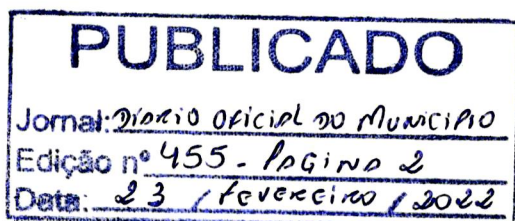 PUBLICADO
Jornal: DIÁRIO OFICIAL DO MUNICIPIO
Edição nº 455 - PAGINA 2
Data: 23 / fevereiro / 2022